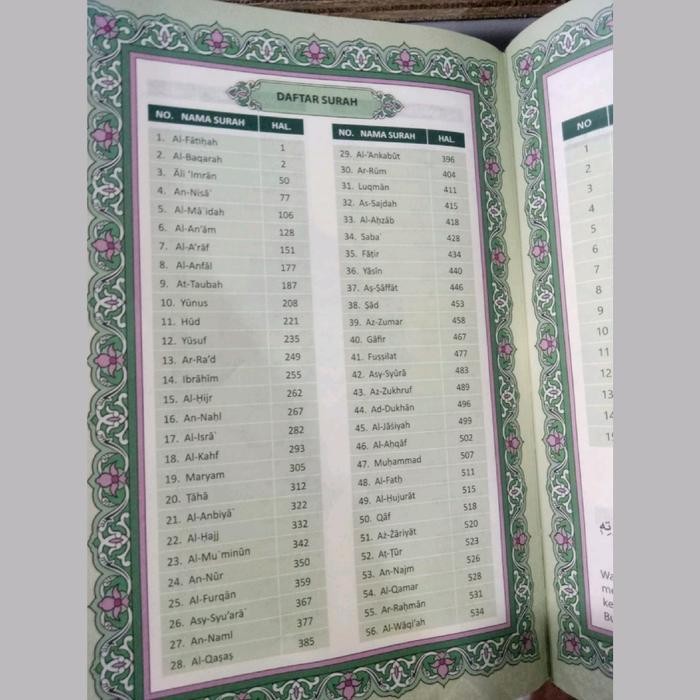 DAFTAR SURAH
NO. NAMA SURAH HAL.
1. Al-Fātiḥah 1
2. Al-Baqarah 2
3. Āli 'Imrān 50
4. An-Nisā` 77
5. Al-Mā`idah 106
6. Al-An'ām 128
7. Al-A'rāf 151
8. Al-Anfāl 177
9. At-Taubah 187
10. Yūnus 208
11. Hūd 221
12. Yūsuf 235
13. Ar-Ra'd 249
14. Ibrāhīm 255
15. Al-Ḥijr 262
16. An-Naḥl 267
17. Al-Isrā` 282
18. Al-Kahf 293
19. Maryam 305
20. Ṭāhā 312
21. Al-Anbiyā` 322
22. Al-Ḥajj 332
23. Al-Mu`minūn 342
24. An-Nūr 350
25. Al-Furqān 359
26. Asy-Syu'arā` 367
27. An-Naml 377
28. Al-Qaṣaṣ 385
NO. NAMA SURAH HAL.
29. Al-'Ankabūt 396
30. Ar-Rūm 404
31. Luqmān 411
32. As-Sajdah 415
33. Al-Aḥzāb 418
34. Saba` 428
35. Fāṭir 434
36. Yāsīn 440
37. Aṣ-Ṣāffāt 446
38. Ṣād 453
39. Az-Zumar 458
40. Gāfir 467
41. Fuṣṣilat 477
42. Asy-Syūrā 483
43. Az-Zukhruf 489
44. Ad-Dukhān 496
45. Al-Jāṡiyah 499
46. Al-Aḥqāf 502
47. Muḥammad 507
48. Al-Fatḥ 511
49. Al-Ḥujurāt 515
50. Qāf 518
51. Aż-Żāriyāt 520
52. Aṭ-Ṭūr 523
53. An-Najm 526
54. Al-Qamar 528
55. Ar-Raḥmān 531
56. Al-Wāqi'ah 534
NO
1
2
3
4
5
6
7
8
9
10
11
12
13
14